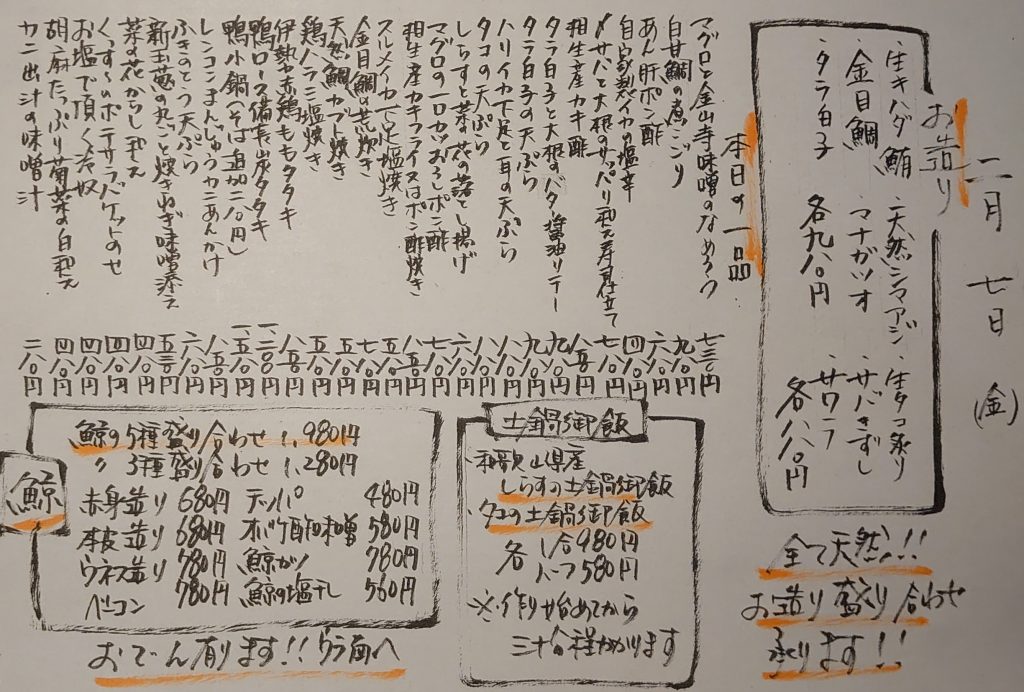 二月 七日 (金)
お造り
・生キハダ鮪 ・天然シマアジ ・生タコ炙り
・金目鯛 ・マナガツオ ・サバきずし
・タラ白子 ・サワラ
各九八〇円 各八八〇円
全て天然!!
お造り盛り合わせ
承ります!!
本日の一品
マグロと金山寺味噌のなめろう 七三〇円
白甘鯛の煮こごり
あん肝ポン酢
自家製イカの塩辛
〆サバと大根のサッパリ和え寿司仕立て
相生産カキ酢
タラ白子と大根のバター醤油ソテー
タラ白子の天ぷら
ハリイカ下足と耳の天ぷら
タコの天ぷら
しらすと菜の花の落とし揚げ
マグロの一口カツおろしポン酢
相生産カキフライ又はポン酢焼き
スルメイカ下足塩焼き
金目鯛の荒炊き
天然鯛カブト焼き
鶏ハラミ塩焼き
伊勢赤鶏ももタタキ
鴨ロース備長炭タタキ
鴨小鍋(そば追加二八〇円)
レンコンまんじゅうカニあんかけ
ふきのとう天ぷら
新玉葱の丸ごと焼きねぎ味噌添え
菜の花からし和え
くっすんポテサラバゲットのせ
お塩で頂く冷奴
胡麻たっぷり菊菜の白和え
カニ出汁の味噌汁 二八〇円
土鍋御飯
・和歌山県産
しらすの土鍋御飯
・タコの土鍋御飯
各 1合 980円
ハーフ 580円
※作り始めてから
三十分程かかります
鯨
鯨の5種盛り合わせ 1,980円
〃 3種盛り合わせ 1,280円
赤身造り 680円 テッパ 480円
本皮造り 680円 オバケ酢味噌 580円
ウネス造り 780円 鯨カツ 780円
ベーコン 780円 鯨の塩干し 560円
おでん有ります!! ウラ面へ